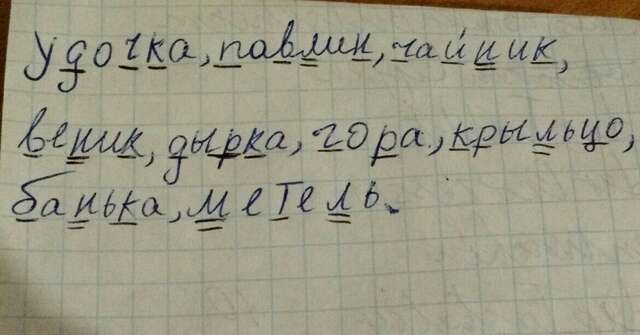 удочка, павлин, чайник,
веник, дырка, гора, крыльцо,
банька, метель.